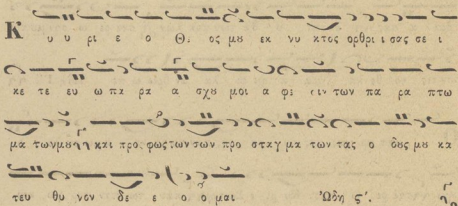 Κ υ υ ρι ε ο Θε ος μȣ εκ νυ κτος ορθρι ι σας σε ι
κε τε ευ ω πα ρα α σχȣ μοι α φε σιν των πα ρα πτω
μα των μȣ και προ φως των σων προ σταγ μα των τας ο δȣς μȣ κα
τευ θυ νον δε ε ο ο μαι Ὠδη ς΄.